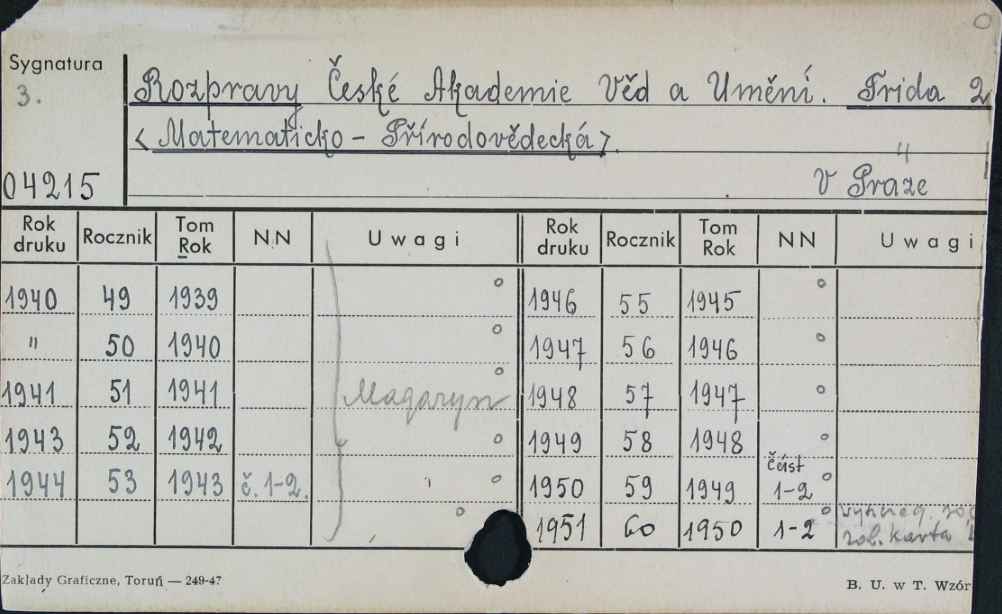 Sygnatura
3.
04215
Rozpravy České Akademie Věd a Umění. Třida 2
<Matematicko - Přírodovědecká>.
V Praze
Rok druku Rocznik Tom Rok NN Uwagi Rok druku Rocznik Tom Rok NN Uwagi
1940 49 1939 1946 55 1945
" 50 1940 1947 56 1946
1941 51 1941 Magazyn 1948 57 1947
1943 52 1942 1949 58 1948
1944 53 1943 č. 1-2. 1950 59 1949 část 1-2
1951 60 1950 1-2
zob. karta
Zakłady Graficzne, Toruń — 249-47
B. U. w T. Wzór